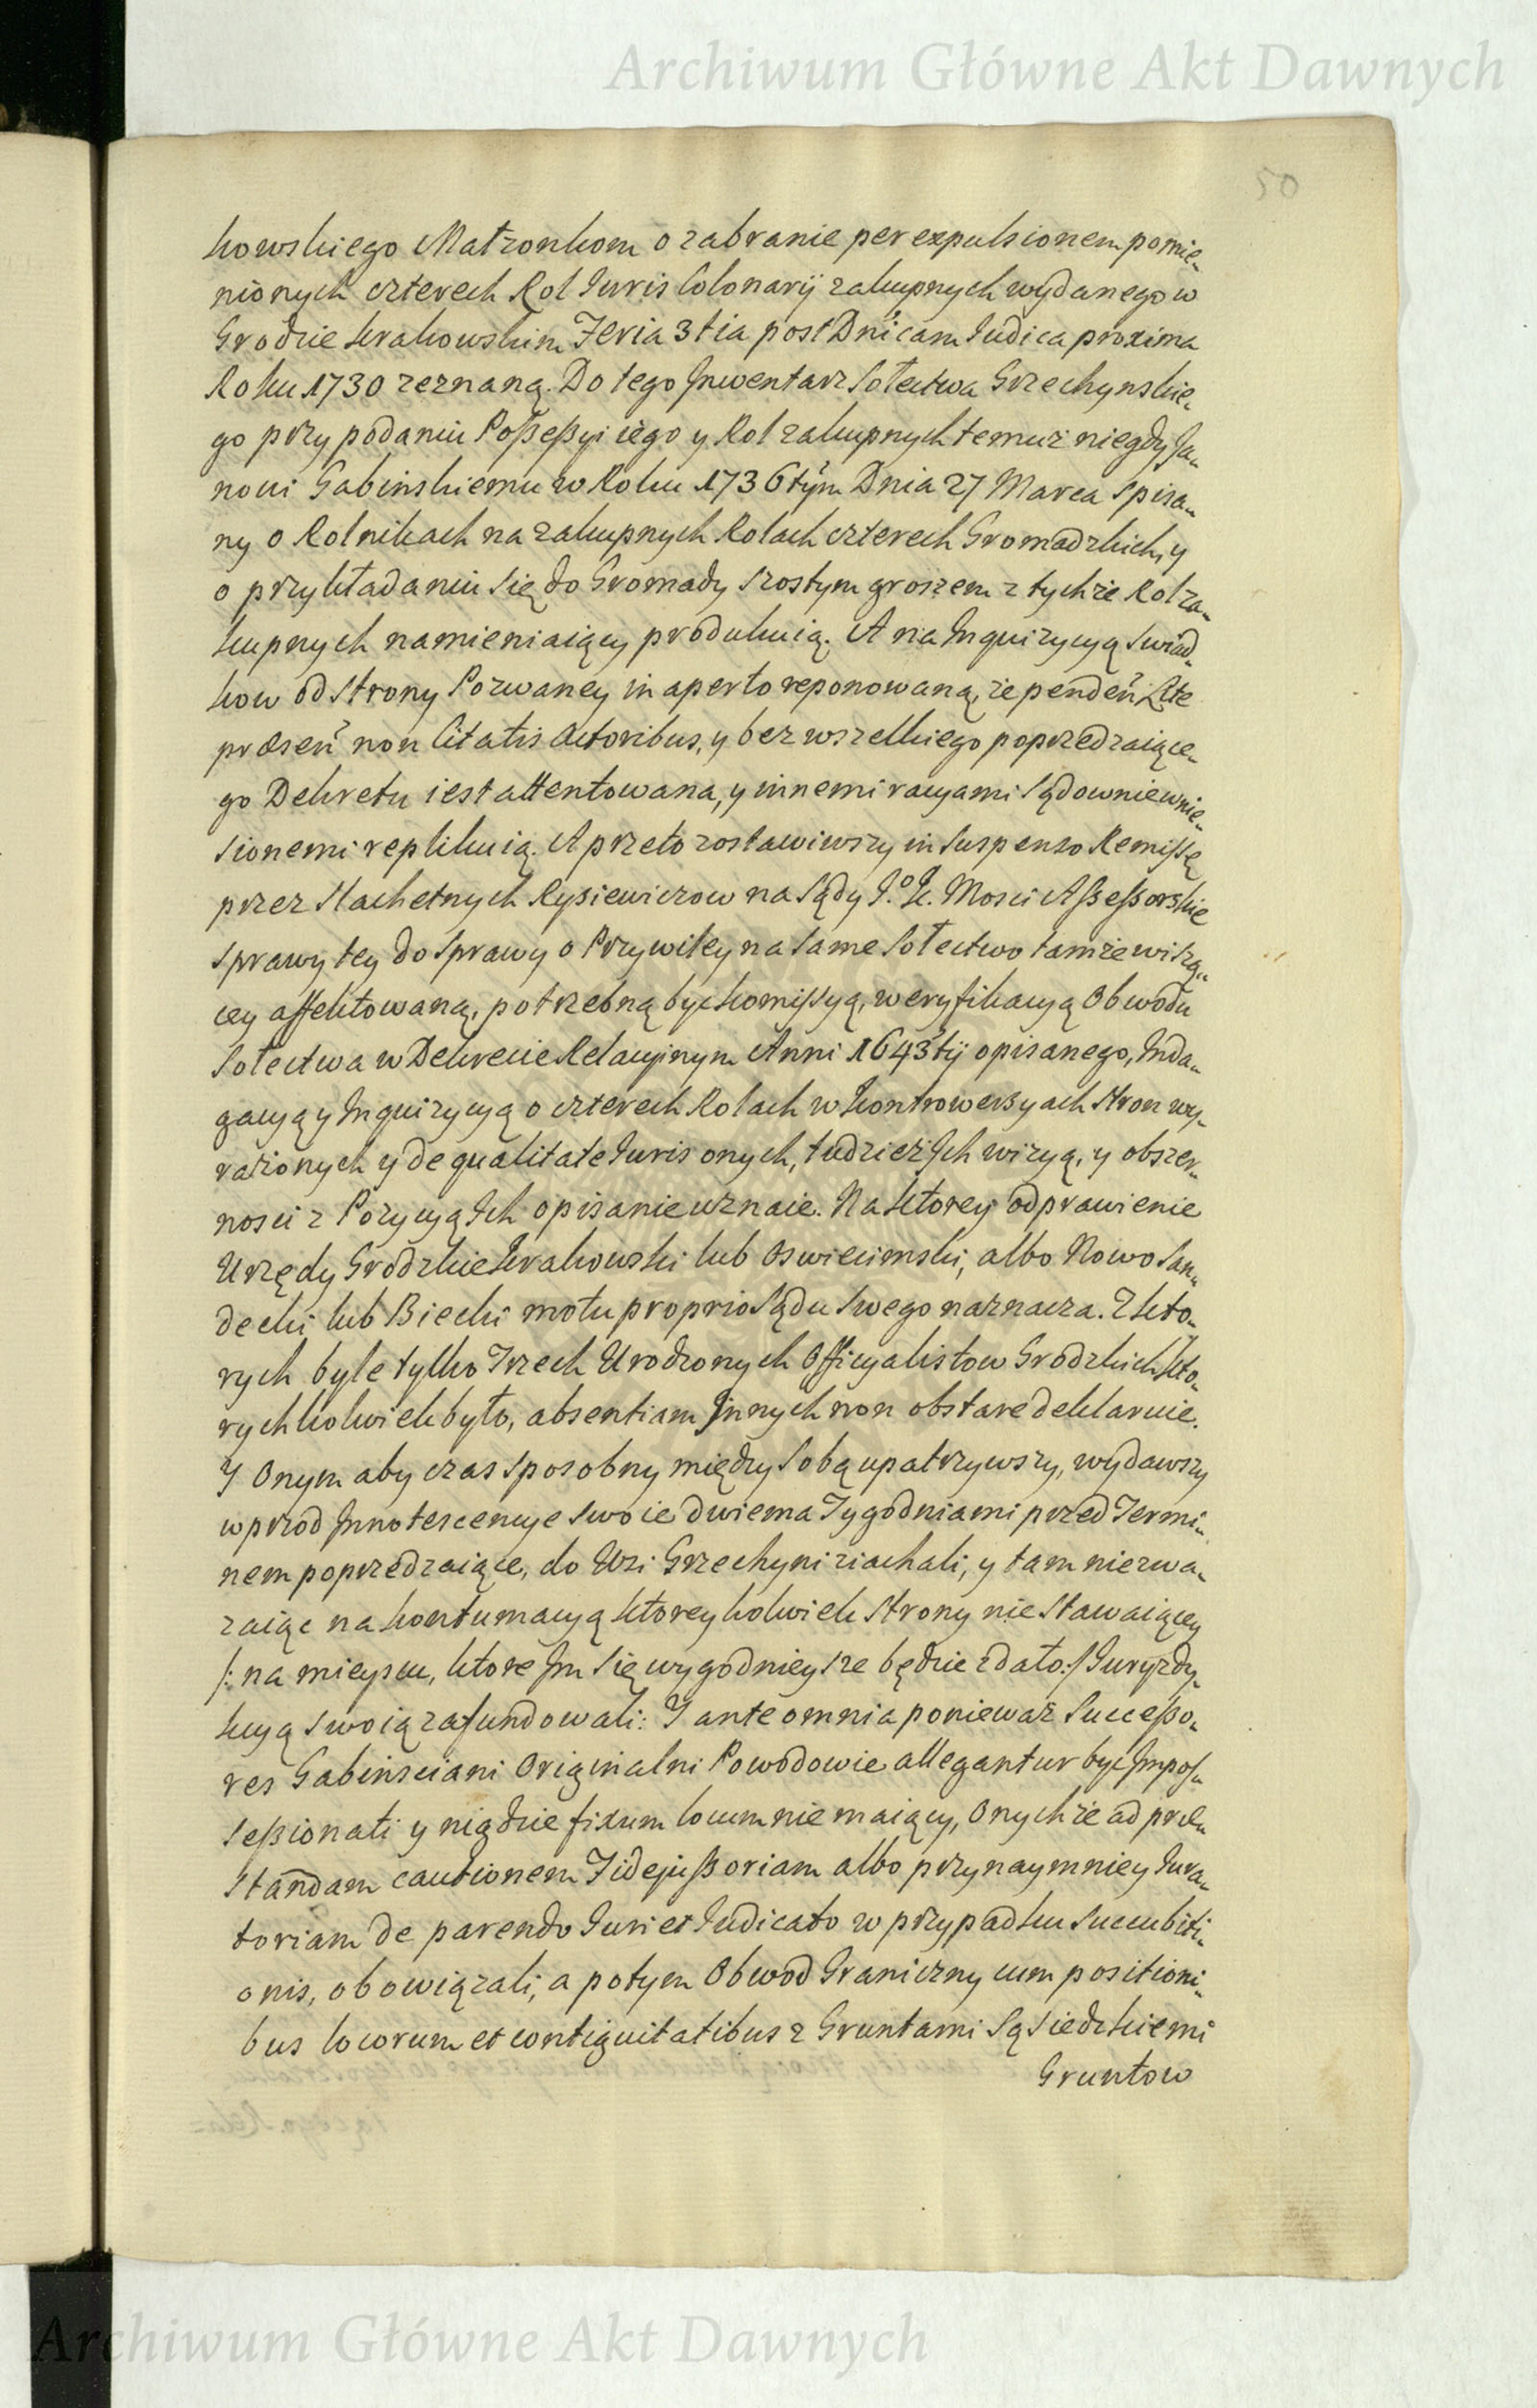 Archiwum Główne Akt Dawnych
50
kowskiego Małzonkom o zabranie per expulsionem pomie-
nionych czterech Rol Iuris Colonarij zakupnych wydanego w
Grodzie Krakowskim Feria 3tia post Dnicam Iudica proxima
Roku 1730 zeznaną. Do tego Inwentarz Sołectwa Grzechynskie-
go przy podaniu Possessyi iego y Rol zakupnych temuz niegdy Ja-
nowi Gabinskiemu w Roku 1736tym Dnia 27 Marca spisa-
ny o Rolnikach na zakupnych Rolach czterech Gromadzkich, y
o przykładaniu się do Gromady szostym groszem z tychże Rol za-
kupnych namieniaiący produkuią. A na Inquizycyą Swiad-
kow od Strony Pozwaney in aperto reponowaną, ze penden Lite
præsen non Citatis Actoribus, y bez wszelkiego poprzedzaiące-
go Dekretu iest attentowana, y innemi racyami Sądownie wnie-
sionemi replikuią. A przeto zostawiwszy in Suspenso Remissę
przez Slachetnych Rysiewiczow na Sądy J. K. Mosci Assessorskie
sprawy tey do Sprawy o Przywiley na same Sołectwo tamże wiszą-
cey affektowaną, potrzebną byc Kommissyą, weryfikacyą Obwodu
Sołectwa w Dekrecie Relacyinym Anni 1643tij opisanego, Inda-
gacyą y Inquizycyą o czterech Rolach w Kontrowersyach Stron wy-
rażonych y de qualitate Iuris onych, tudziesz Ich wizyą, y obszer-
nosci z Pozycyą Ich opisanie uznaie. Na ktorey odprawienie
Urzędy Grodzkie Krakowski lub Oswiecimski, albo Nowo San-
decki lub Biecki motu proprio Sądu swego naznacza. Z kto-
rych byle tylko Trzech Urodzonych Officyalistow Grodzkich kto-
rychkolwiek było, absentiam Innych non obstare deklaruie.
Y Onym aby czas sposobny między Sobą upatrzywszy, wydawszy
wprzod Innotescencye swoie dwiema Tygodniami przed Termi-
nem poprzedzaiące, do Wsi Grzechyni ziachali, y tam niezwa-
zaiąc na kontumacyą ktoreykolwiek Strony nie Stawaiącey
/: na mieyscu, ktore Im się wygodnieysze będzie zdało :/ Iuryzdy-
kcyą swoią zafundowali: Y ante omnia ponieważ Successo-
res Gabinsciani Originalni Powodowie allegantur byc Impos-
sessionati y nigdzie fixum locum nie maiący, Onychże ad præ-
standam cautionem Fidejussoriam albo przynaymniey Iura-
toriam de parendo Iuri et Iudicato w przypadku Succubiti-
onis, obowiązali, a potym Obwod Graniczny cum positioni-
bus locorum et contiguitatibus z Gruntami Sąsiedzkiemi
Gruntow
Archiwum Główne Akt Dawnych